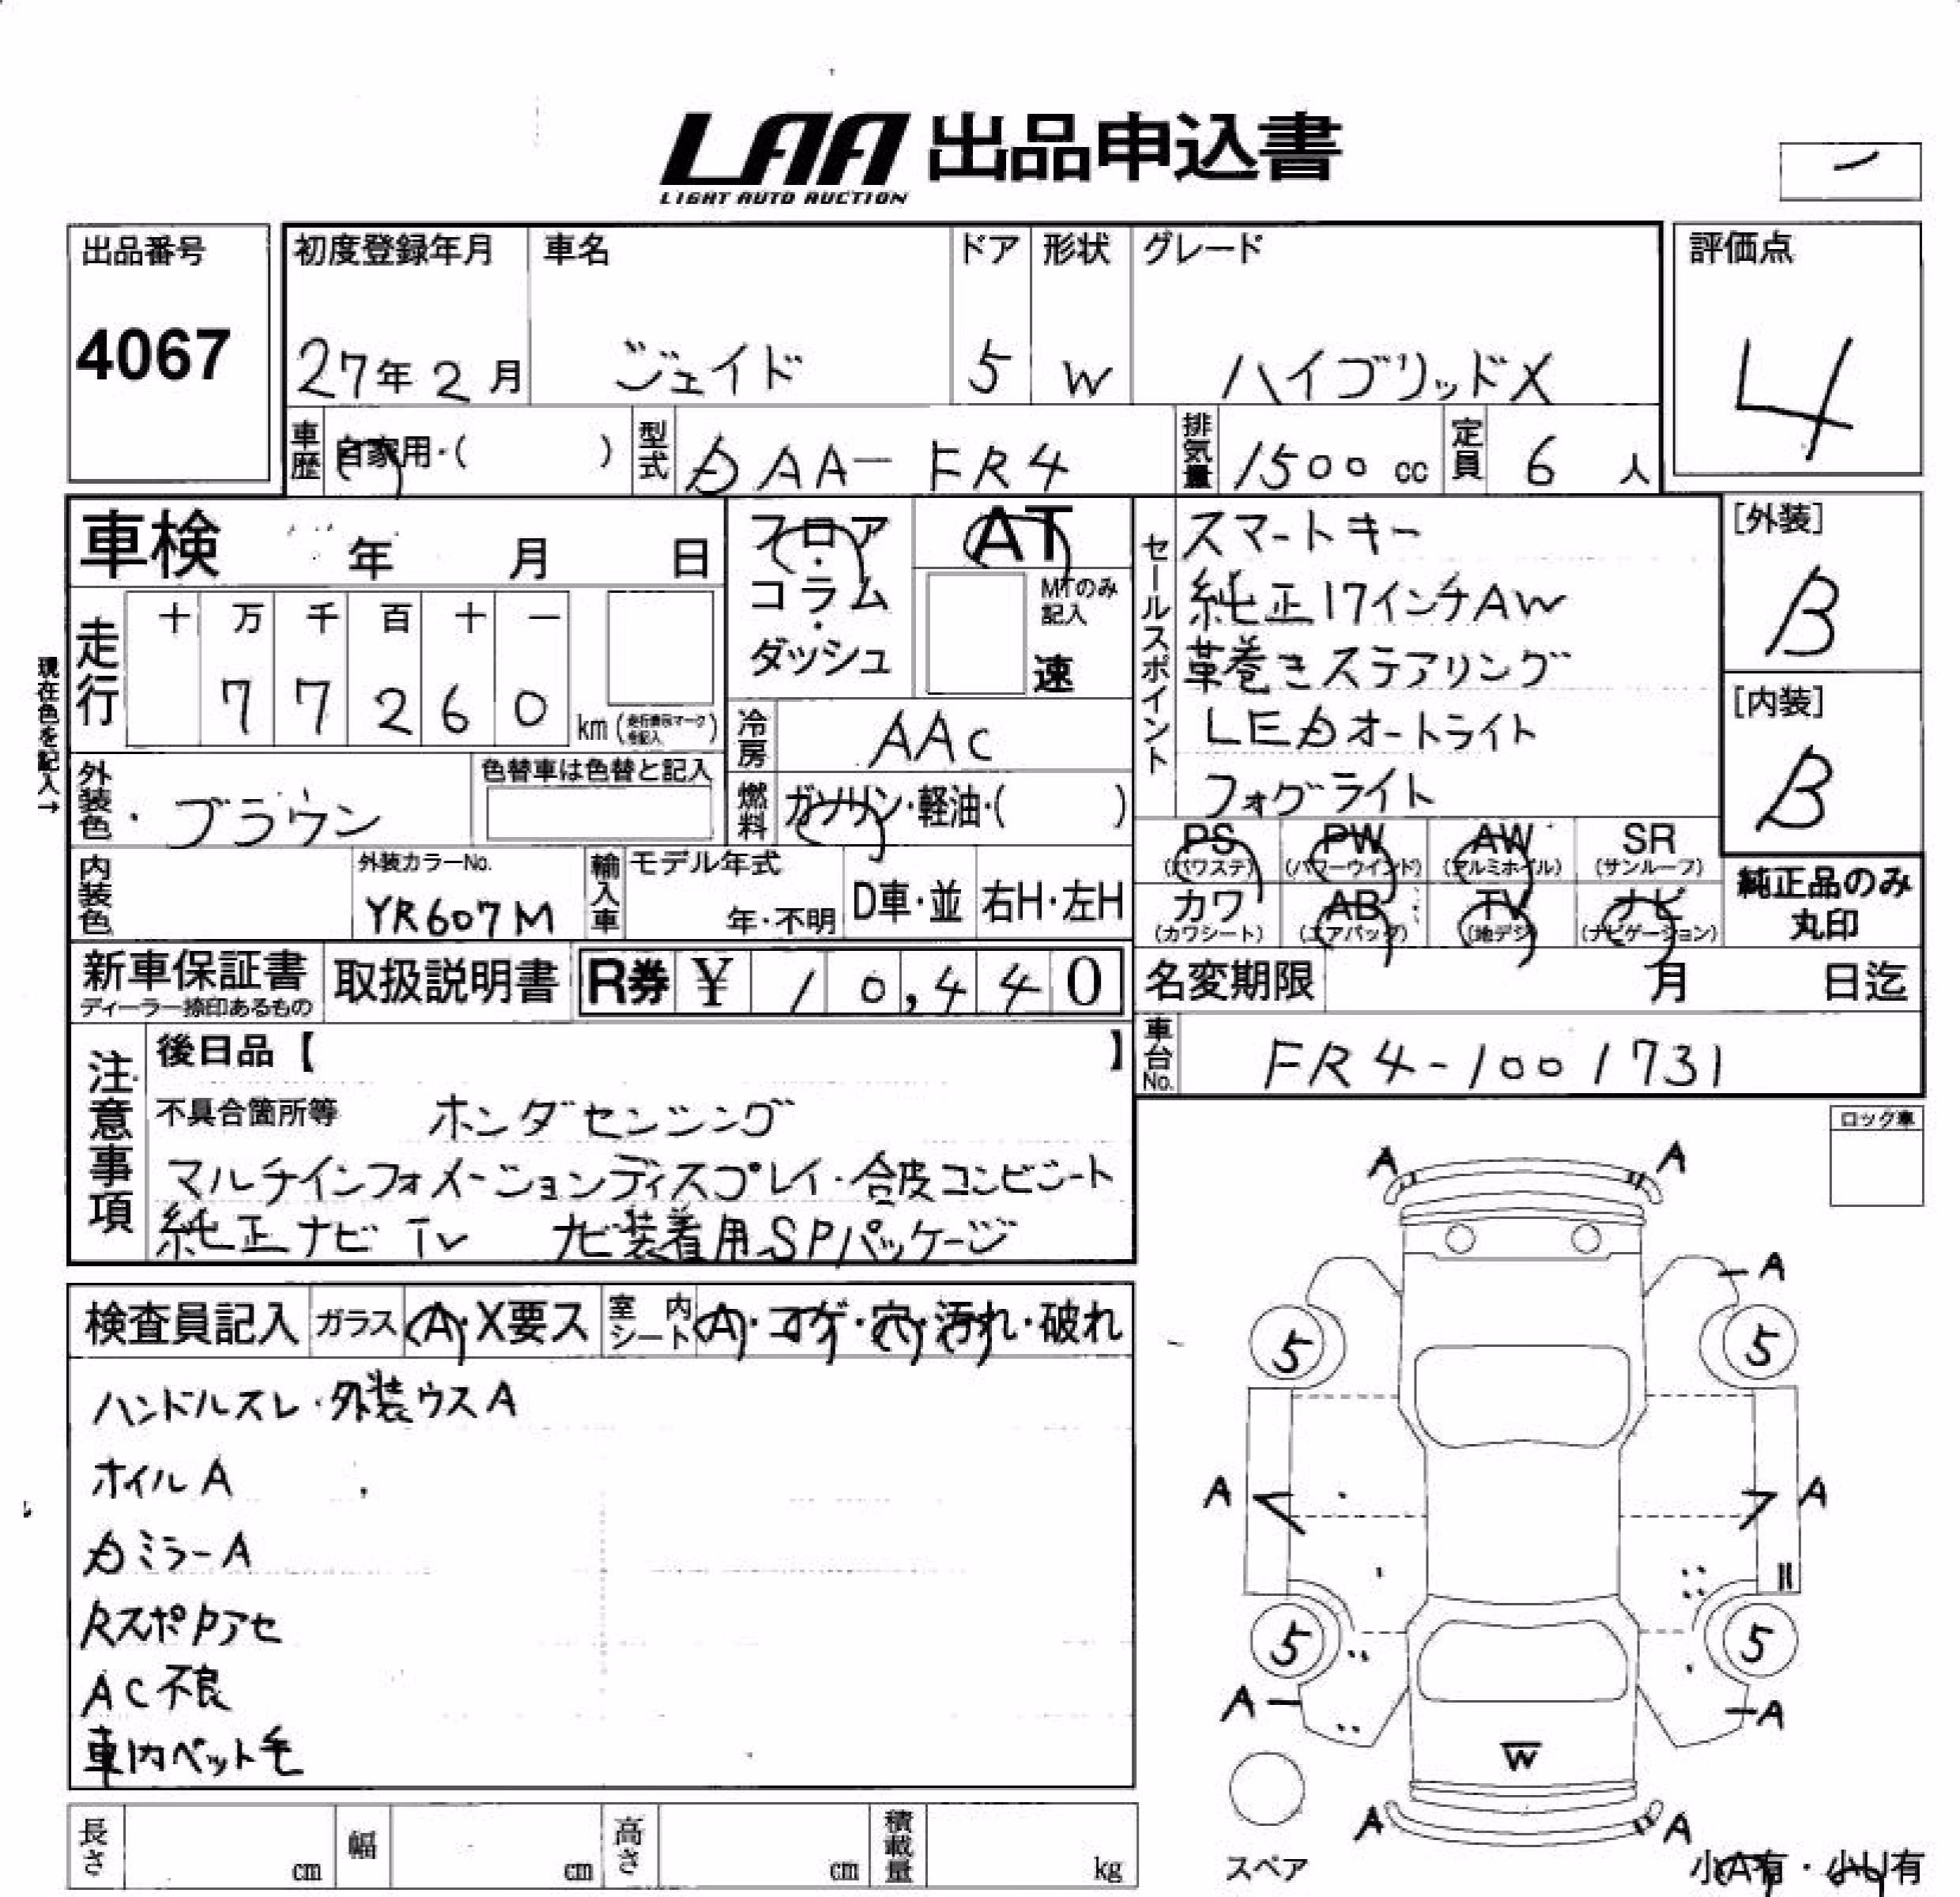 LAA 出品申込書
LIGHT AUTO AUCTION
出品番号
4067
初度登録年月 車名 ドア 形状 グレード
27年2月 ジェイド 5 W ハイブリッドX
評価点
4
車歴 自家用・( ) 型式 DAA-FR4 排気量 1500cc 定員 6人
車検 年 月 日
フロア・コラム・ダッシュ
AT
MTのみ記入
速
走行 十 万 千 百 十 一
7 7 2 6 0 km (走行表示マーク を記入)
現在色を記入→
冷房 AAC
外装色・ブラウン
色替車は色替と記入
燃料 ガソリン・軽油・( )
セールスポイント
スマートキー
純正17インチAW
革巻きステアリング
LEDオートライト
フォグライト
[外装]
B
[内装]
B
PS (パワステ) PW (パワーウインド) AW (アルミホイル) SR (サンルーフ)
カワ (カワシート) AB (エアバッグ) TV (地デジ) ナビ (ナビゲーション)
純正品のみ
丸印
内装色
外装カラーNo.
YR607M
輸入車 モデル年式
年・不明 D車・並 右H・左H
新車保証書
ディーラー捺印あるもの
取扱説明書
R券 ¥ 10,440
名変期限 月 日迄
車台No. FR4-1001731
注意事項
後日品【 】
不具合箇所等 ホンダセンシング
マルチインフォメーションディスプレイ・合皮コンビシート
純正ナビTV ナビ装着用SPパッケージ
ロック車
検査員記入 ガラス A・X要ス 室内シート A・コゲ・穴・汚れ・破れ
ハンドルスレ・外装ウスA
ホイルA
Dミラー A
RスポPアセ
AC不良
車内ペット毛
A A
A
5 5
A A
5 5
A A
W
A A
スペア
小A有・小U有
長さ cm 幅 cm 高さ cm 積載量 kg